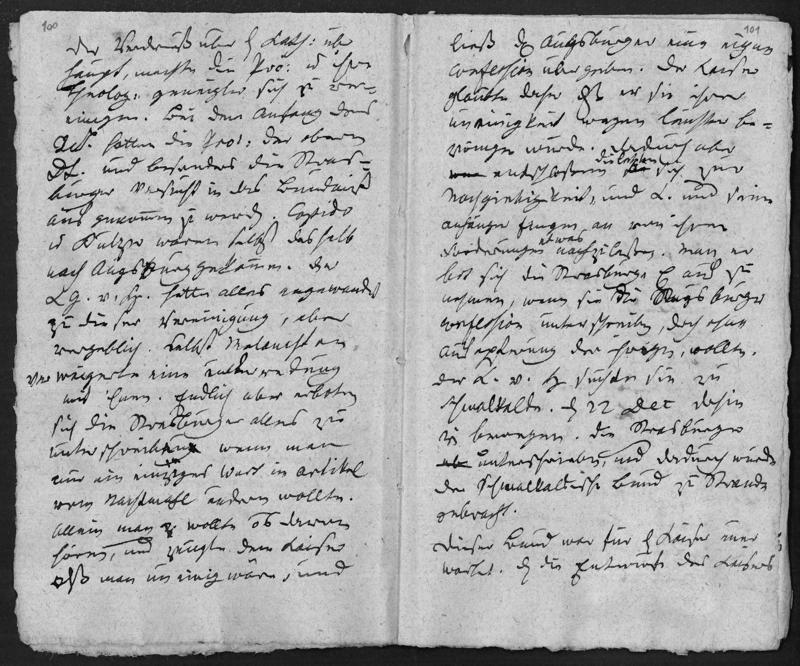 100
Der Verdruß über d Kath: übr
haupt, machte die Pro: u ihre
Theolog: geneigter sich zu ver-
einigen. Bei dem Anfang des
hatten die Prot: der obern
und besonders die Stras-
burger Versucht in das Bündniß
aufgenommen zu werden. Capido
u Butzer waren selbst deshalb
nach Augsburg gekommen. der
Lg. v. H. hatte alles angewandt
zu dieser Vereinigung, aber
vergeblich. Selbst Melancht an
Verweigerte eine unterredung
mit ihnen. Endlich aber erboten
sich die Strasburger alles zu
unterschreiben wenn man
nur ein einziges Wort im Artikel
vom Nachtmahl ändern wollte.
Allein man wollte es davon
hören, und zeugte dem Kaiser
dß man uneinig wäre, und
101
ließ d Augsburger eine eigne
Confession übergeben. Der Kaiser
glaubte daher dß er sie ihrer
uneinigkeit wegen leichter be-
zwingen würde. dadurch aber
entschlossen die letztern sich zur
Nachgiebigkeit, und L. und seine
anhänger fingen an von ihren
Forderungen etwas nachzulaßen. Man er
bot sich die Strasburger auch zu
nehmen, wenn sie die Augsburger
confession unterschreiben, doch ohne
aufopferung der ihrigen, wollten.
der L. v. H suchte sie zu
Schmalkalde. d 22 Dec dahin
zu bewegen. die Strasburger
unterschrieben, und dadurch wurde
der Schmalkaldische Bund zu Stande
gebracht.
Dieser Bund war für d Kaiser uner
wartet. d die Entwürfe des Kaisers